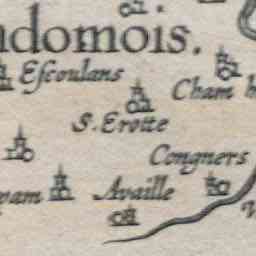 ndomois.
Escoulans
Cham
S. Erotte
Congners
Availle